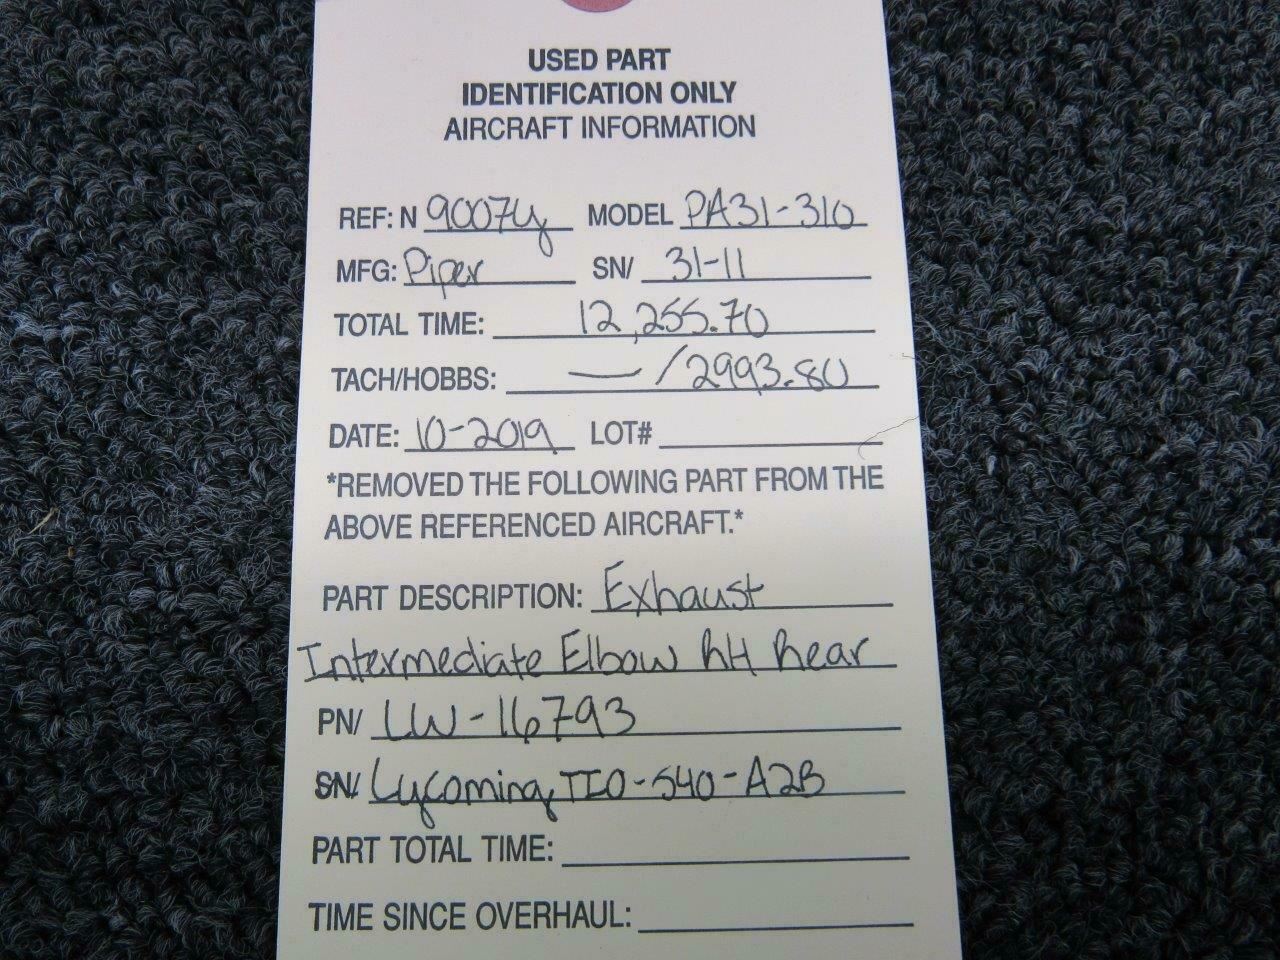 USED PART
IDENTIFICATION ONLY
AIRCRAFT INFORMATION
REF: N 9007Y MODEL PA31-310
MFG: Piper SN/ 31-11
TOTAL TIME: 12,255.70
TACH/HOBBS: — / 2993.80
DATE: 10-2019 LOT#
*REMOVED THE FOLLOWING PART FROM THE
ABOVE REFERENCED AIRCRAFT.*
PART DESCRIPTION: Exhaust
Intermediate Elbow RH Rear
PN/ LW-16793
SN/ Lycoming TIO-540-A2B
PART TOTAL TIME:
TIME SINCE OVERHAUL: